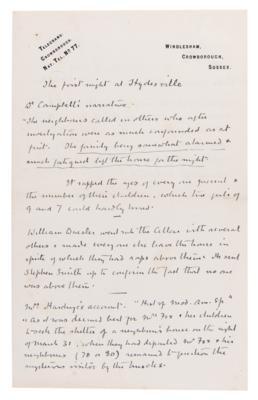 TELEGRAMS
CROWBOROUGH.
NAT. TEL. Nº 77.
WINDLESHAM,
CROWBOROUGH,
SUSSEX.
The first night at Hydesville
Dr Campbell's narrative.
"The neighbours called in others who after
investigation were as much confounded as at
first. The family being somewhat alarmed &
much fatigued left the house for the night
It rapped the ages of every one present &
the number of their children, which two girls of
9 and 7 could hardly have.
William Duesler went into the Cellar with several
others & made every one else leave the house in
spite of which they had raps above them. He sent
Stephen Smith up to confirm the fact that no one
was above them.
Mrs Hardinge's account. "Hist of Mod. Am. Sp"
"As it was deemed best for Mrs Fox & her children
to seek the shelter of a neighbour's house on the night
of March 31, when they had departed Mr Fox & his
neighbours (70 or 80) remained to question the
mysterious visitor by the knocks.